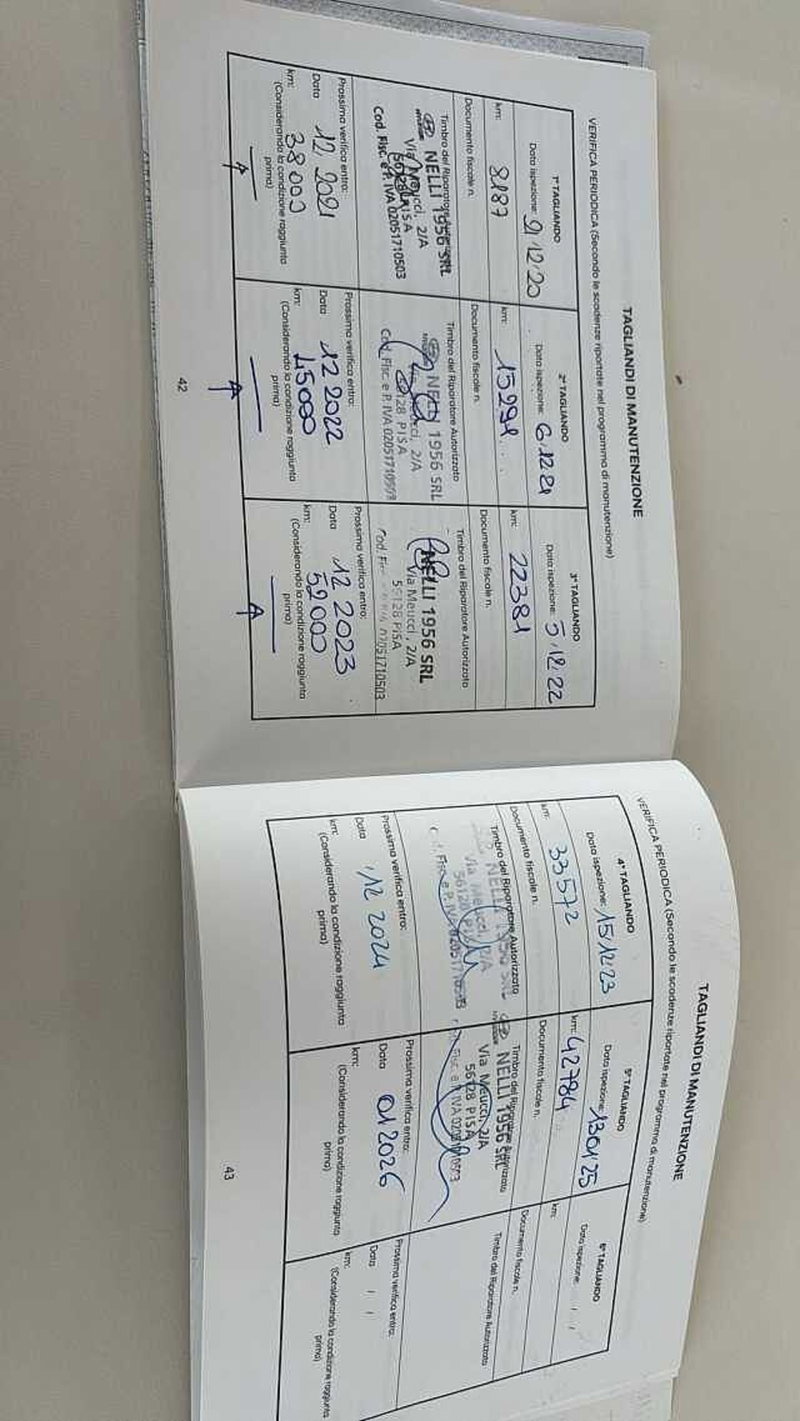 TAGLIANDI DI MANUTENZIONE
VERIFICA PERIODICA (Secondo le scadenze riportate nel programma di manutenzione)
1° TAGLIANDO
Data ispezione: 9/12/20
km: 8187
Documento fiscale n.
Timbro del Riparatore Autorizzato
NELLI 1956 SRL
Via Meucci, 2/A
56128 PISA
Cod. Fisc. e P. IVA 02051710503
Prossima verifica entro:
Data 12/2021
km: 38000
(Considerando la condizione raggiunta
prima)
2° TAGLIANDO
Data ispezione: 6/12/21
km: 15291
Documento fiscale n.
Timbro del Riparatore Autorizzato
NELLI 1956 SRL
Via Meucci, 2/A
56128 PISA
Cod. Fisc. e P. IVA 02051710503
Prossima verifica entro:
Data 12 2022
km: 45000
(Considerando la condizione raggiunta
prima)
3° TAGLIANDO
Data ispezione: 5/12/22
km: 22381
Documento fiscale n.
Timbro del Riparatore Autorizzato
NELLI 1956 SRL
Via Meucci, 2/A
56128 PISA
Cod. Fisc. 02051710503
Prossima verifica entro:
Data 12 2023
km: 52000
(Considerando la condizione raggiunta
prima)
42
TAGLIANDI DI MANUTENZIONE
VERIFICA PERIODICA (Secondo le scadenze riportate nel programma di manutenzione)
4° TAGLIANDO
Data ispezione: 15/12/23
km: 33572
Documento fiscale n.
Timbro del Riparatore Autorizzato
NELLI 1956 SRL
Via Meucci, 2/A
56128 PISA
Fisc. e P. IVA 02051710503
Prossima verifica entro:
Data 12 2024
km:
(Considerando la condizione raggiunta
prima)
5° TAGLIANDO
Data ispezione: 13/01/25
km: 42784
Documento fiscale n.
Timbro del Riparatore Autorizzato
NELLI 1956 SRL
Via Meucci, 2/A
56128 PISA
Fisc. e P. IVA 02051710503
Prossima verifica entro:
Data 01 2026
km:
(Considerando la condizione raggiunta
prima)
6° TAGLIANDO
Data ispezione: / /
km:
Documento fiscale n.
Timbro del Riparatore Autorizzato
Prossima verifica entro:
Data / /
km:
(Considerando la condizione raggiunta
prima)
43